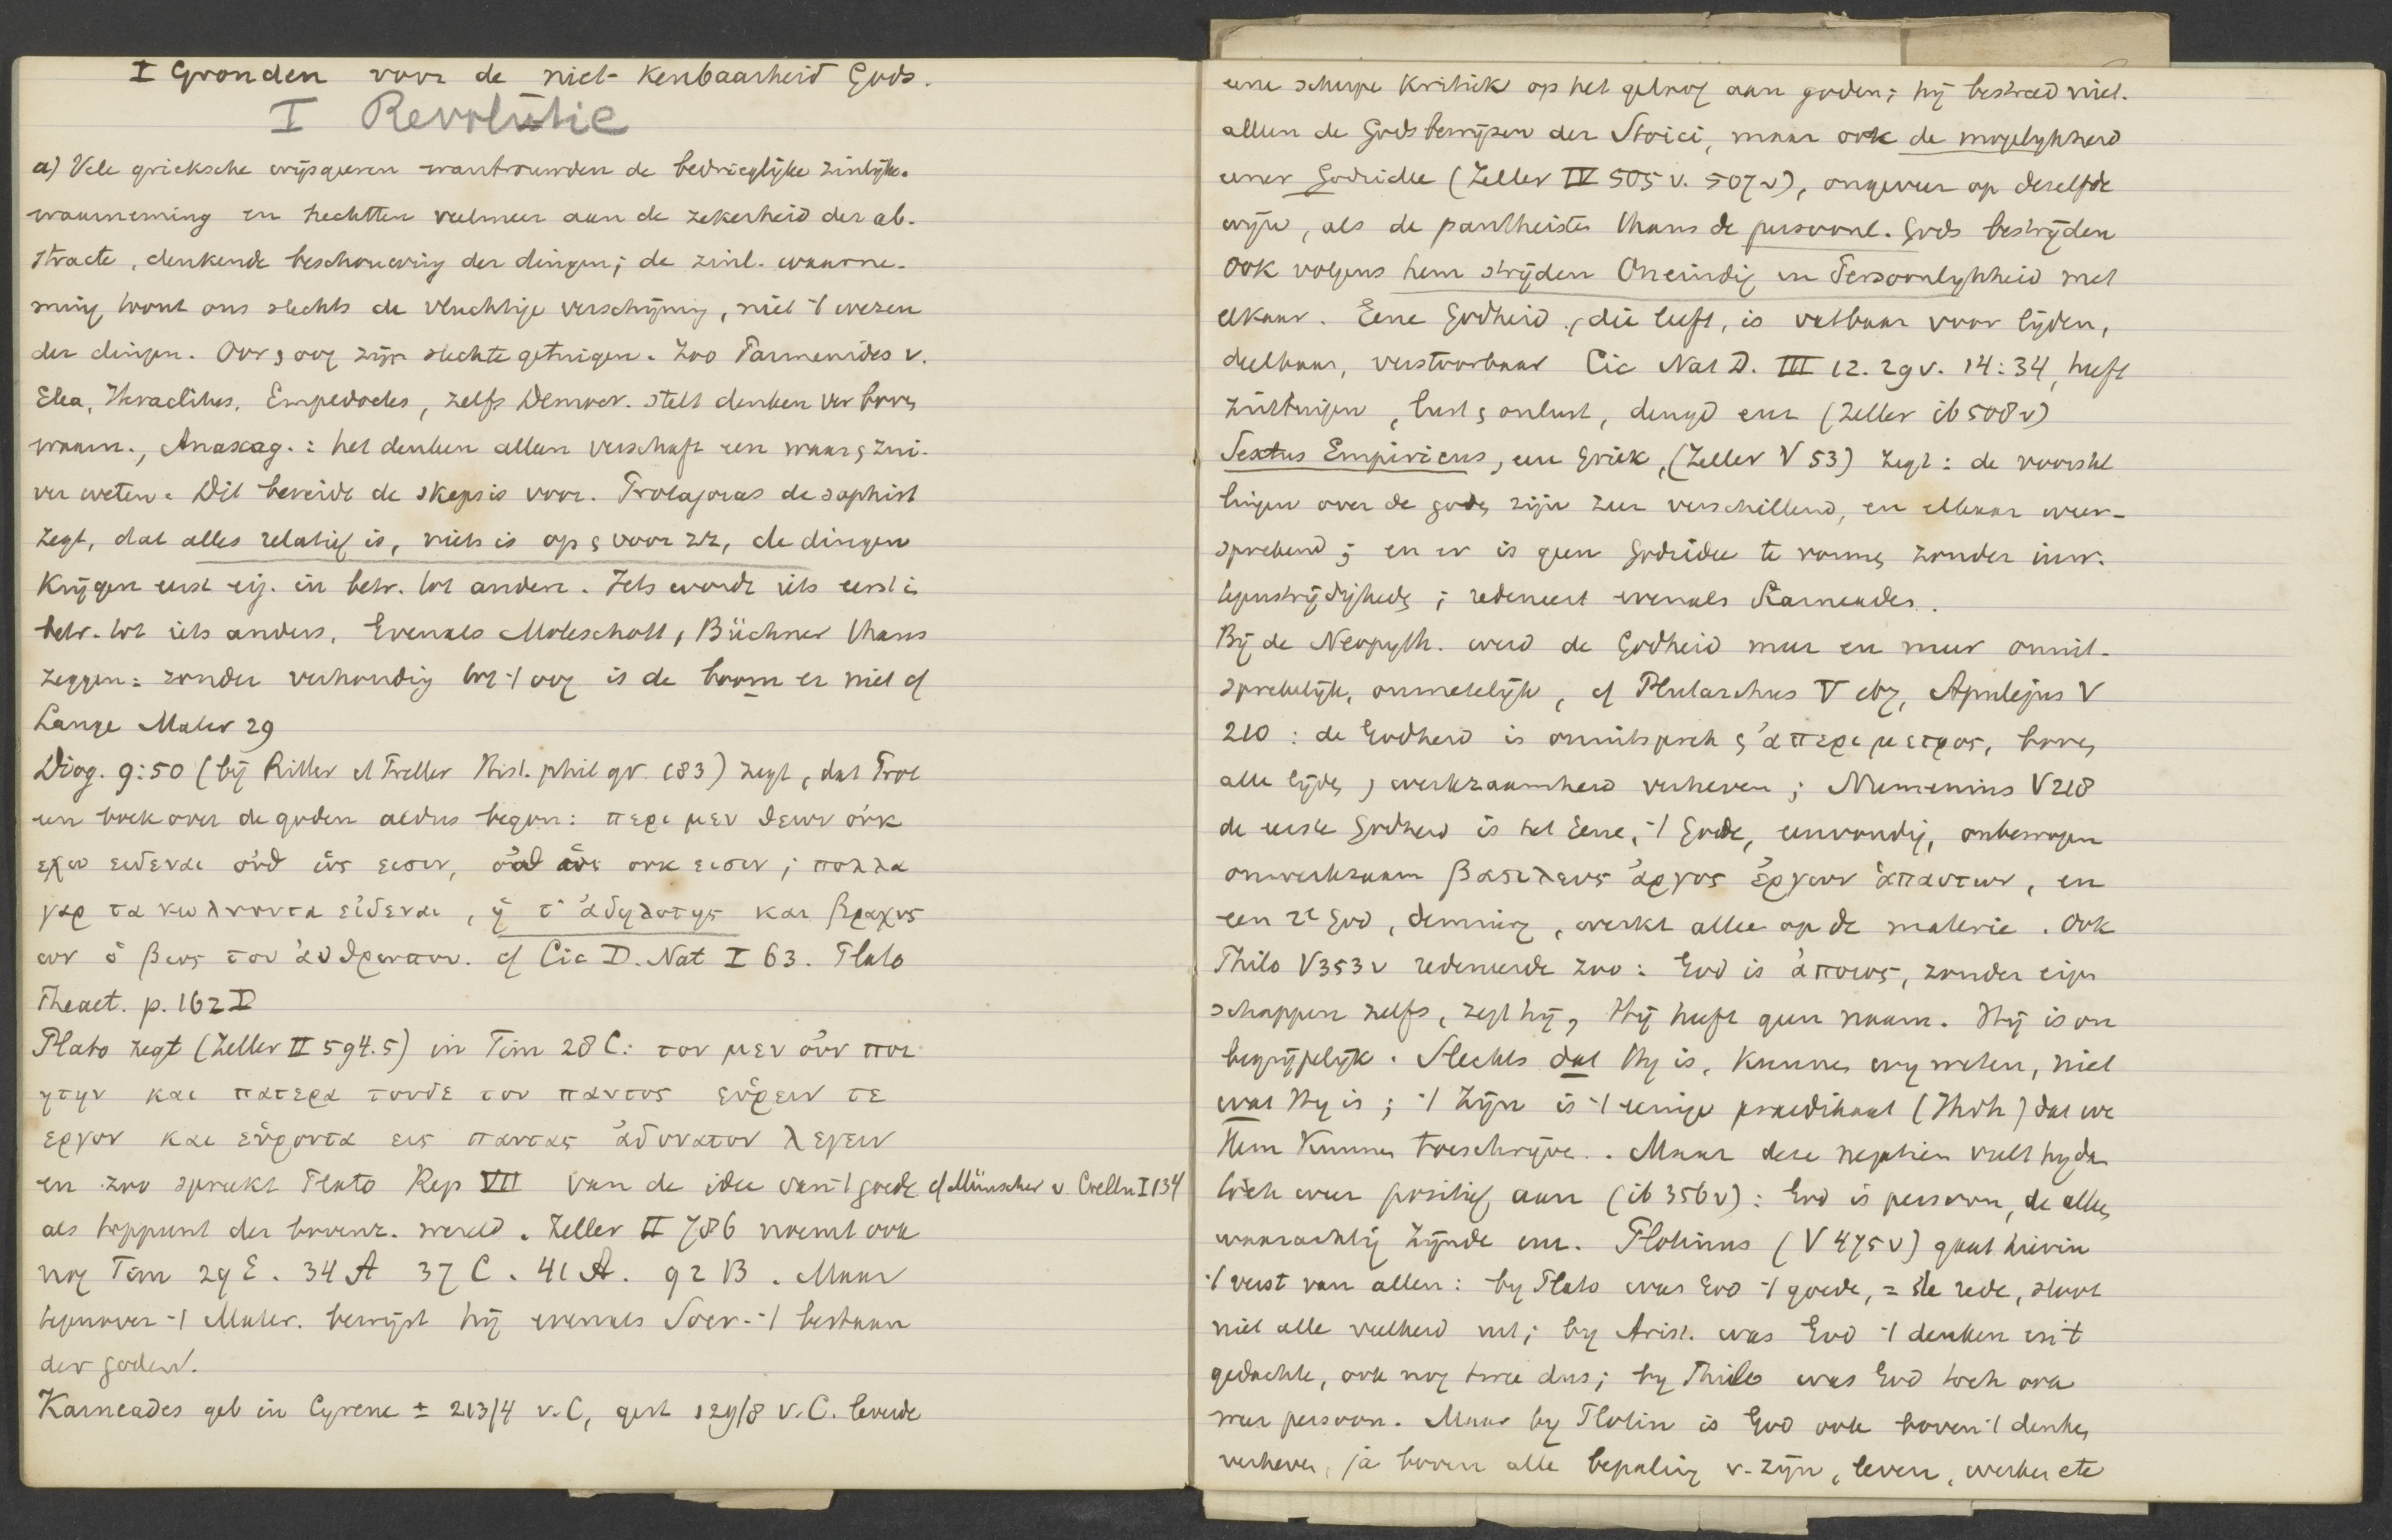 I Gronden voor de niet-kenbaarheid Gods.
I Revolutie
a) Vele grieksche wijsgeeren wantrouwden de bedrieglijke zinlijke
waarneming en hechtten veelmeer aan de zekerheid der ab-
stracte, denkende beschouwing der dingen; de zinl. waarne-
ming toont ons slechts de vluchtige verschijning, niet 't wezen
der dingen. Oor & oog zijn slechte getuigen. Zoo Parmenides v.
Elea, Heraclitus, Empedocles, zelfs Democr. stelt denken ver boven
waarn., Anaxag.: het denken alleen verschaft een waar & zui-
ver weten. Dit bereidde de skepsis voor. Protagoras de sophist
zegt, dat alles relatief is, niets is op & voor zz, de dingen
krijgen eerst eig. in betr. tot andere. Iets wordt iets eerst i
betr. tot iets anders. Evenals Moleschott, Büchner thans
zeggen: zonder verhouding tot 't oog is de boom er niet cf
Lange Mater 29
Diog. 9:50 (bij Ritter et Preller Hist. phil gr. 183) zegt, dat Prot
een boek over de goden aldus begon: περι μεν θεων οὐκ
εχω ειδεναι οὐθ ὡς εισιν, οὐθ ὡς ουκ εισιν; πολλα
γαρ τα κωλυοντα εἰδεναι, ἡ τ' ἀδηλοτης και βραχυς
ων ὁ βιος του ἀνθρωπου. cf Cic D. Nat I 63. Plato
Theaet. p. 162 D
Plato zegt (Zeller II 594.5) in Tim 28 C: τον μεν οὐν ποι
ητην και πατερα τουδε του παντος εὑρειν τε
εργον και εὑροντα εις παντας ἀδυνατον λεγειν
en zoo spreekt Plato Rep VII van de idee van 't goede cf Münscher v. Coelln I 134
als toppunt der bovenz. wereld. Zeller II 786 noemt ook
nog Tim 29 E. 34 A 37 C. 41 A. 92 B. Maar
tegenover 't Mater. bewijst hij evenals Socr. 't bestaan
der goden.
Karneades geb in Cyrene ± 213/4 v. C, gest 129/8 v. C. leverde
eene scherpe kritiek op het geloof aan goden; hij bestreed niet
alleen de Godsbewijzen der Stoici, maar ook de mogelykheid
eener Godsidee (Zeller IV 505 v. 507 v), ongeveer op dezelfde
wijze, als de pantheisten thans de persoonl. Gods bestrijden
Ook volgens hem strijden Oneindig en Persoonlykheid met
elkaar. Eene Godheid, die leeft, is vatbaar voor lijden,
deelbaar, verstoorbaar Cic Nat D. III 12. 29 v. 14:34, heeft
zintuigen, lust & onlust, deugd enz (Zeller ib 508 v)
Sextus Empiricus, een Griek, (Zeller V 53) zegt: de voorstel
lingen over de goden zijn zeer verschillend, en elkaar weer-
sprekend; en er is geen Godsidee te vormen zonder inw.
tegenstrijdigheden; redeneert evenals Karneades.
Bij de Neopyth. werd de Godheid meer en meer onuit-
sprekelijk, onmetelijk, cf Plutarchus V 167, Apulejus V
210: de Godheid is onuitsprek & ἀπεριμετρος, boven
alle lijden & werkzaamheid verheven; Numenius V 218
de eerste Godheid is het Eene, 't Goede, eenvoudig, onbewogen
onwerkzaam βασιλευς ἀργος ἐργων ἁπαντων, en
een 2e God, demiurg, werkt alleen op de materie. Ook
Philo V 353 v redeneerde zoo: God is ἀποιος, zonder eigen
schappen zelfs, zegt hij, Hij heeft geen naam. Hij is on
begrijpelijk. Slechts dat Hy is, kunnen wy weten, niet
wat Hy is; 't Zijn is 't eenige praedikaat (Jhvh) dat we
Hem kunnen toeschrijven. Maar deze negatien vult hy dan
toch weer positief aan (ib 356 v): God is persoon, de alleen
waarachtig Zijnde enz. Plotinus (V 475 v) gaat hierin
't verst van allen: by Plato was God 't goede, = de rede, sloot
niet alle veelheid uit; by Arist. was God 't denken en 't
gedachte, ook nog twee dus; by Philo was God toch ook
weer persoon. Maar by Plotin is God ook boven 't denken
verheven, ja boven alle bepaling v. zijn, leven, werken etc